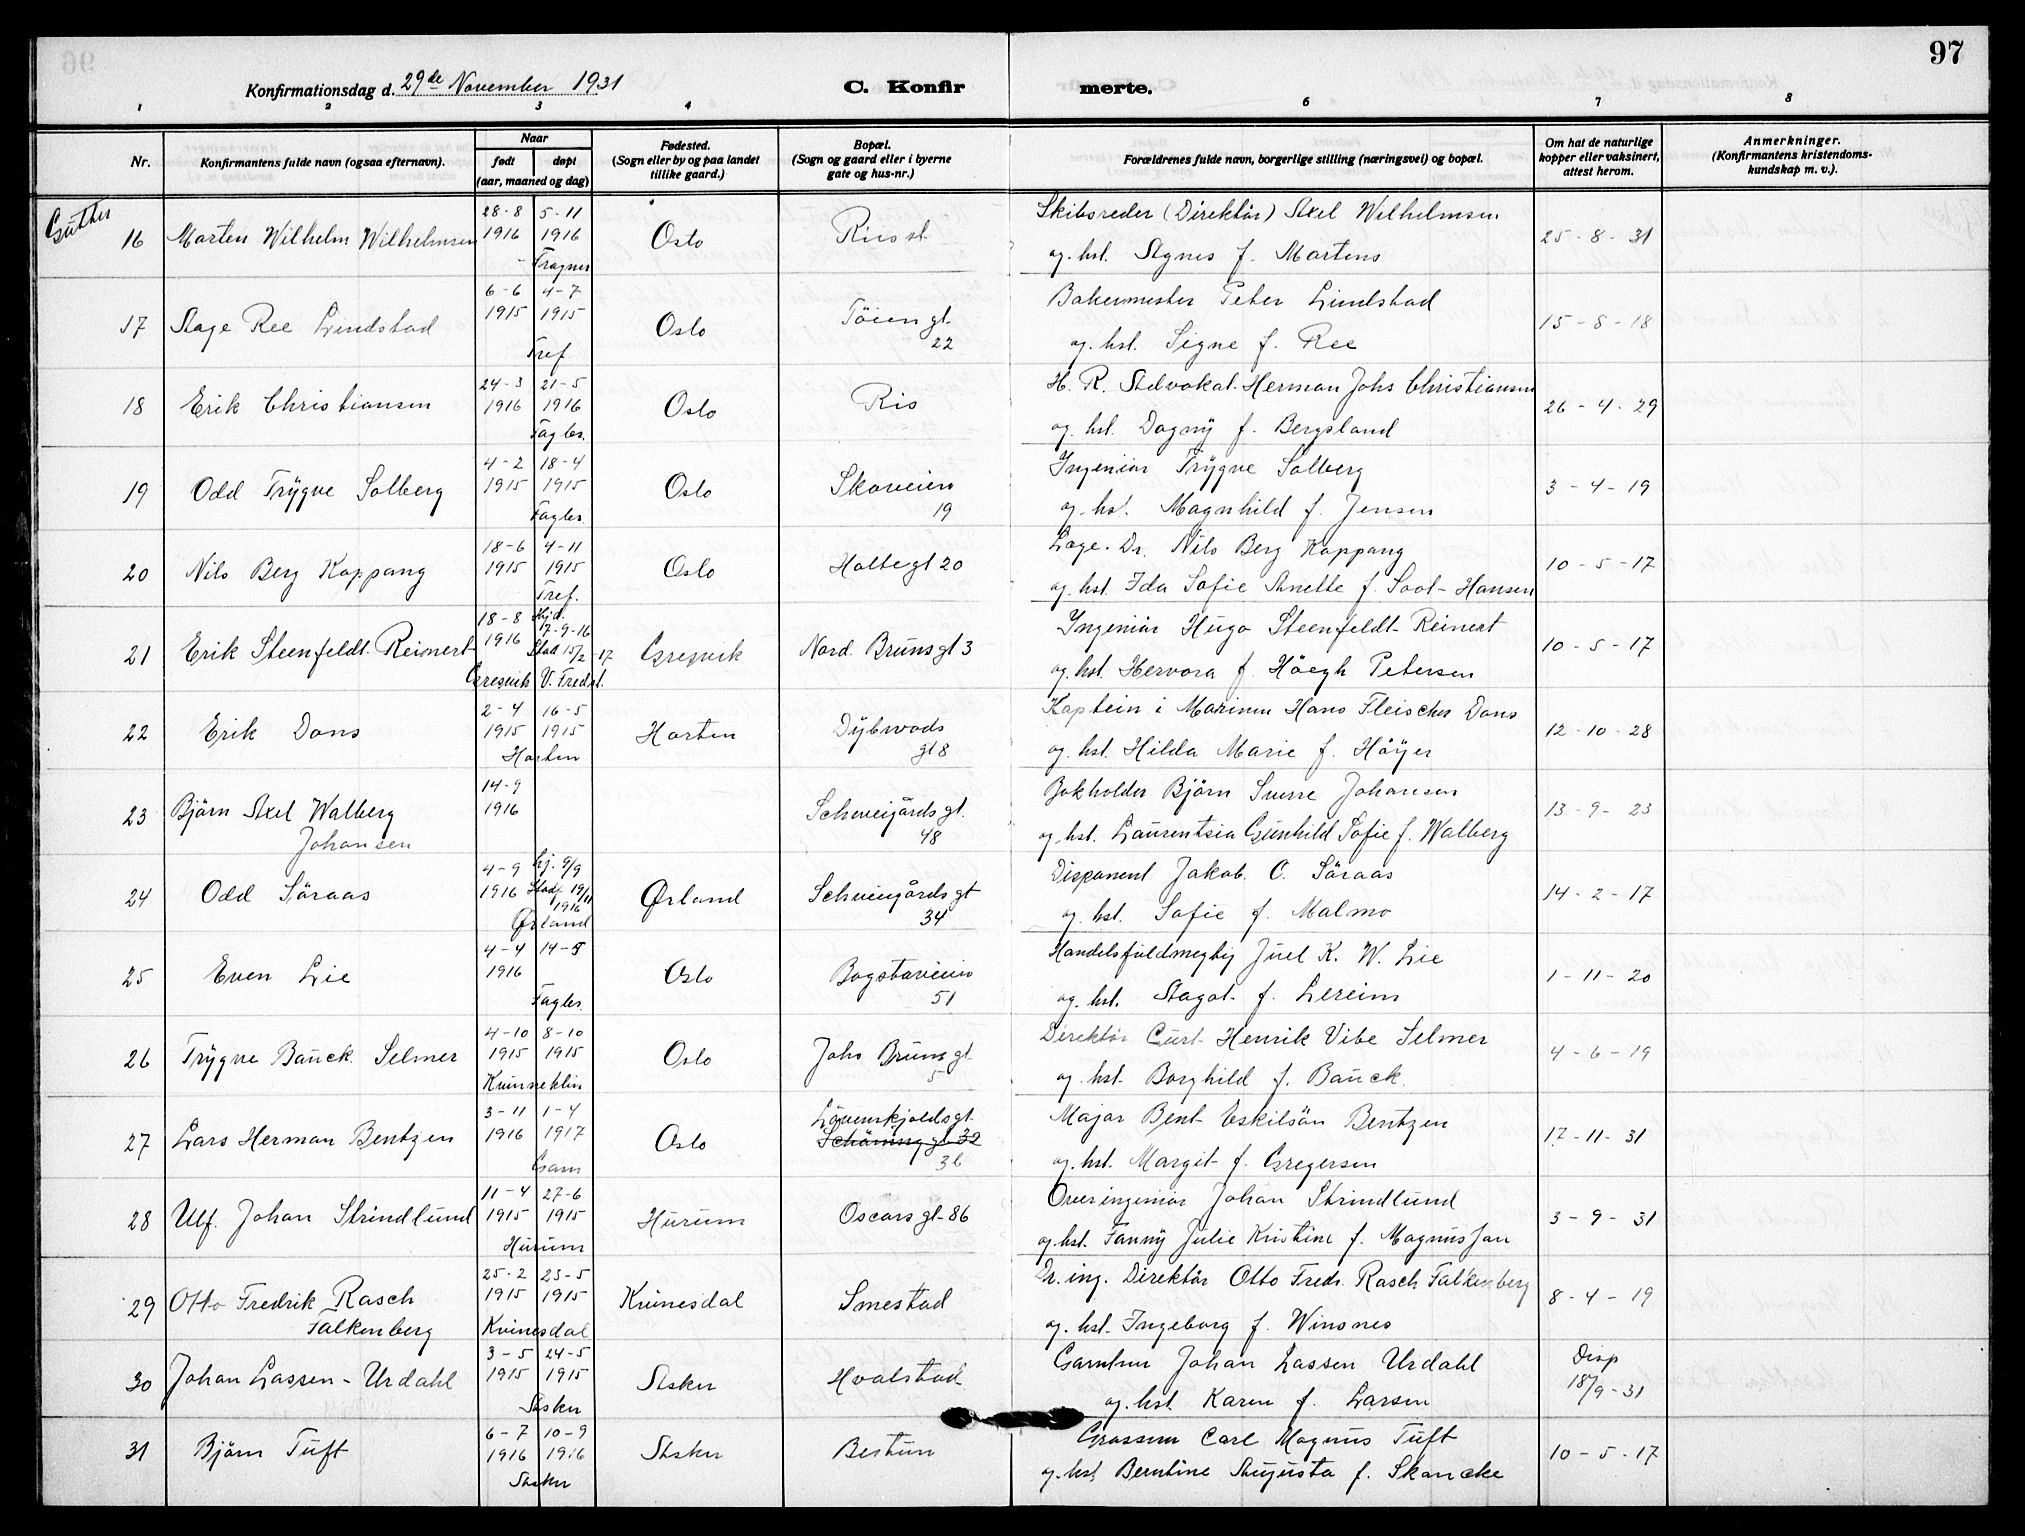 97
Konfirmationsdag d. 29de November 1931
C. Konfir
merte.
1 2 3 4 6 7 8
Nr.
Konfirmantens fulde navn (ogsaa efternavn).
Naar
født
døpt
(aar, maaned og dag)
Fødested.
(Sogn eller by og paa landet
tillike gaard.)
Bopæl.
(Sogn og gaard eller i byerne
gate og hus-nr.)
Forældrenes fulde navn, borgerlige stilling (næringsvei) og bopæl.
Om hat de naturlige
kopper eller vaksinert,
attest herom.
Anmerkninger.
(Konfirmantens kristendoms-
kundskap m. v.).
16 Morten Wilhelm Wilhelmsen 28-8 1916 5-11 1916 Fragner Oslo Riis st.
Skibsreder (Direktör) Axel Wilhelmsen
og hst. Agnes f. Martens
25-8-31
17 Aage Ree Lindstad 6-6 1915 4-7 1915 Tref Oslo Töien gt. 22
Bakermester Peter Lindstad
og hst. Signe f. Ree
15-8-18
18 Erik Christiansen 24-3 1916 21-5 1916 Fagbr. Oslo Ris
H. R. Advokat Herman Johs Christiansen
og hst. Dagny f. Bergsland
26-4-29
19 Odd Trygve Solberg 4-2 1915 18-4 1915 Fagbr. Oslo Skoveien 19
Ingeniör Trygve Solberg
og hst. Magnhild f. Jensen
3-4-19
20 Nils Berg Kappang 18-6 1915 4-11 1915 Tref. Oslo Holtegt 20
Læge. Dr. Nils Berg Kappang
og hst. Ida Sofie Anette f. Soot-Hansen
10-5-17
21 Erik Steenfeldt-Reinert 18-8 1916 Hjd. 17-9-16 Stad 15/2-17 Gresvik V. Fredst. Gresvik Nord. Bruns gt 3
Ingeniör Hugo Steenfeldt-Reinert
og hst. Hervora f. Höegh Petersen
10-5-17
22 Erik Dons 2-4 1915 16-5 1915 Horten Horten Dybwads gt 8
Kaptein i Marinen Hans Fleischer Dons
og hst. Hilda Marie f. Höyer
12-10-28
23 Björn Axel Walberg Johansen 14-9 1916 Schweigårds gt. 48
Bokholder Björn Sverre Johansen
og hst. Laurentsia Gunhild Sofie f. Walberg
13-9-23
24 Odd Söraas 4-9 1916 hj. 9/9 Stadf. 19/11 1916 Ørland Ørland Schweigårds gt 34
Disponent Jakob O. Söraas
og hst. Sofie f. Malmo
14-2-17
25 Even Lie 4-4 1916 14-5 Fagbr. Oslo Bogstadveien 51
Handelsfuldmegtig Juel K. W. Lie
og hst. Aagot f. Lereim
1-11-20
26 Trygve Bauck Selmer 4-10 1915 8-10 1915 Kvinneklin Oslo Johs Bruns gt. 5
Direktör Curt Henrik Vibe Selmer
og hst. Borghild f. Bauck.
4-6-19
27 Lars Herman Bentzen 3-11 1916 1-4 1917 Gam Oslo Lövenskjolds gt. Schöning gt 32 36
Major Bent Eskilsön Bentzen
og hst. Margit f. Gregersen
17-11-31
28 Ulf. Johan Strindlund 11-4 1915 27-6 1915 Hurum Hurum Oscars gt-86
Overingeniör Johan Strindlund
og hst. Fanny Julie Kristine f. Magnussen
3-9-31
29 Otto Fredrik Rasch Falkenberg 25-2 1915 23-5 1915 Kvinesdal Kvinesdal Smestad
Dr. ing. Direktör Otto Fredr. Rasch Falkenberg
og hst. Ingeborg f. Winsnes
8-4-19
30 Johan Lassen-Urdahl 3-5 1915 24-5 1915 Asker Asker Hvalstad
Gartner Johan Lassen Urdahl
og hst. Karen f. Larsen
Disp 18/9-31
31 Björn Tuft 6-7 1916 10-9 1916 Asker Asker Bestun
Grosserer Carl Magnus Tuft
og hst Berntine Augusta f. Skancke
10-5-17